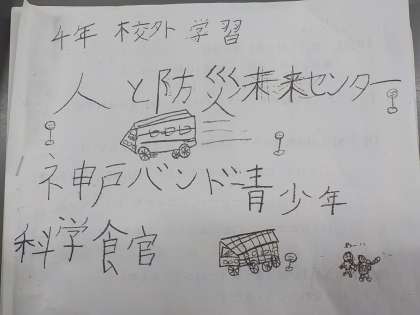 4年 校外 学習
人と防災未来センター
神戸バンドー青少年
科学館